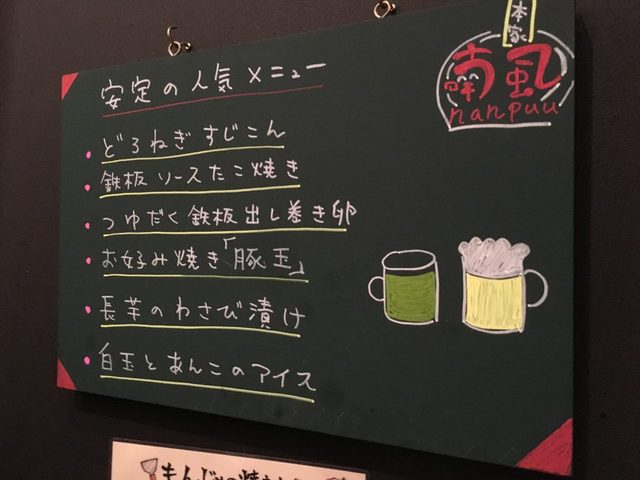 本家
南風
nanpuu
安定の人気メニュー
・どろねぎすじこん
・鉄板ソースたこ焼き
・つゆだく鉄板出し巻き卵
・お好み焼き「豚玉」
・長芋のわさび漬け
・白玉とあんこのアイス